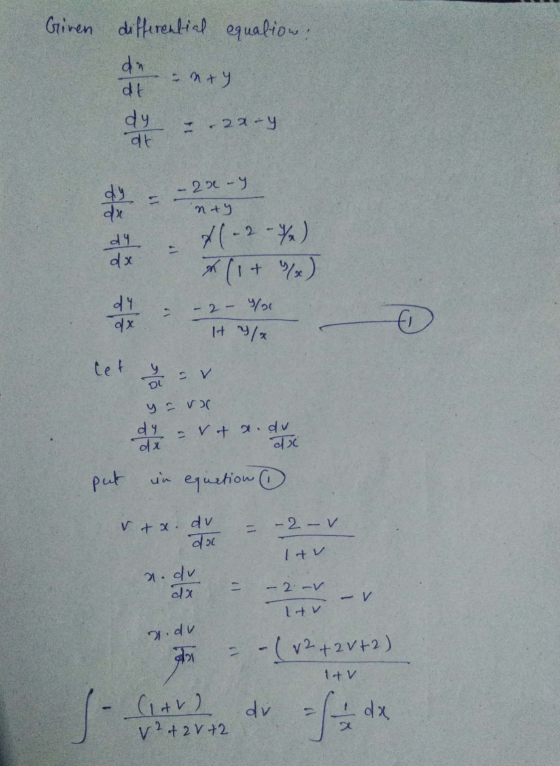 Given differential equation:
dx/dt = x+y
dy/dt = -2x-y
dy/dx = (-2x-y)/(x+y)
dy/dx = x(-2-y/x)/x(1+y/x)
dy/dx = (-2-y/x)/(1+y/x) ——— ①
let y/x = v
y = vx
dy/dx = v + x. dv/dx
put in equation ①
v + x. dv/dx = (-2-v)/(1+v)
x. dv/dx = (-2-v)/(1+v) - v
x. dv/dx = -(v²+2v+2)/(1+v)
∫ - (1+v)/(v²+2v+2) dv = ∫ 1/x dx